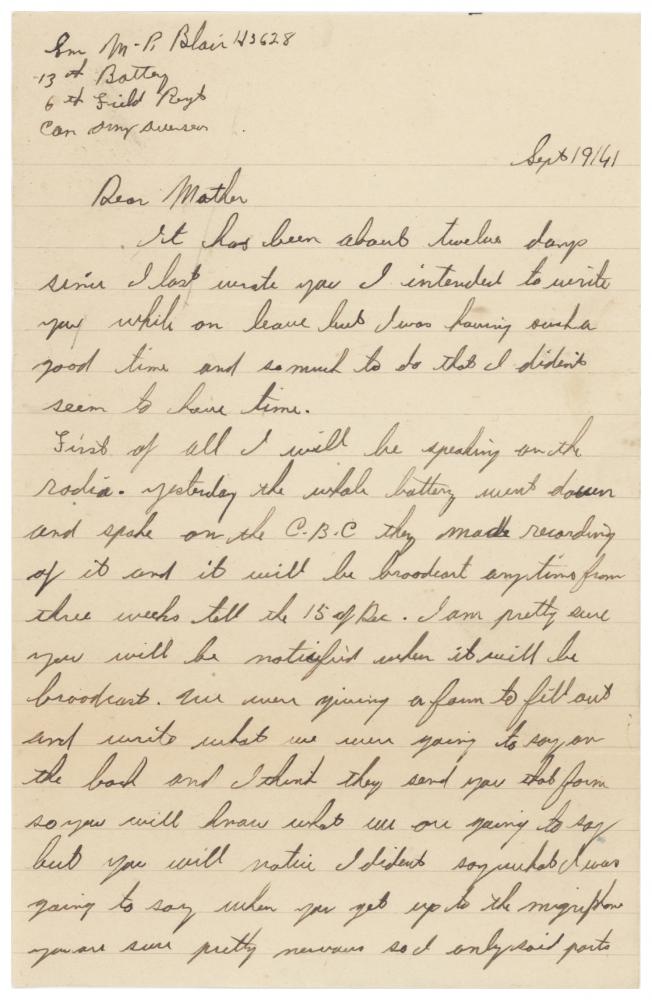 Gnr M. P. Blair H3628
13th Battery
6th Field Regt
Can Army Overseas
Sept 19/41
Dear Mother
It has been about twelve days
since I last wrote you I intended to write
you while on leave but I was having such a
good time and so much to do that I dident
seem to have time.
First of all I will be speaking on the
radio. yesterday the whole battery went down
and spoke on the C.B.C they made recording
of it and it will be broadcast anytime from
three weeks till the 15 of Dec. I am pretty sure
you will be notified when it will be
broadcast. We were giving a form to fill out
and write what we were going to say on
the back and I think they send you that form
so you will know what we are going to say
but you will notice I dident say what I was
going to say when you get up to the
you are sure pretty nervous so I only said parts